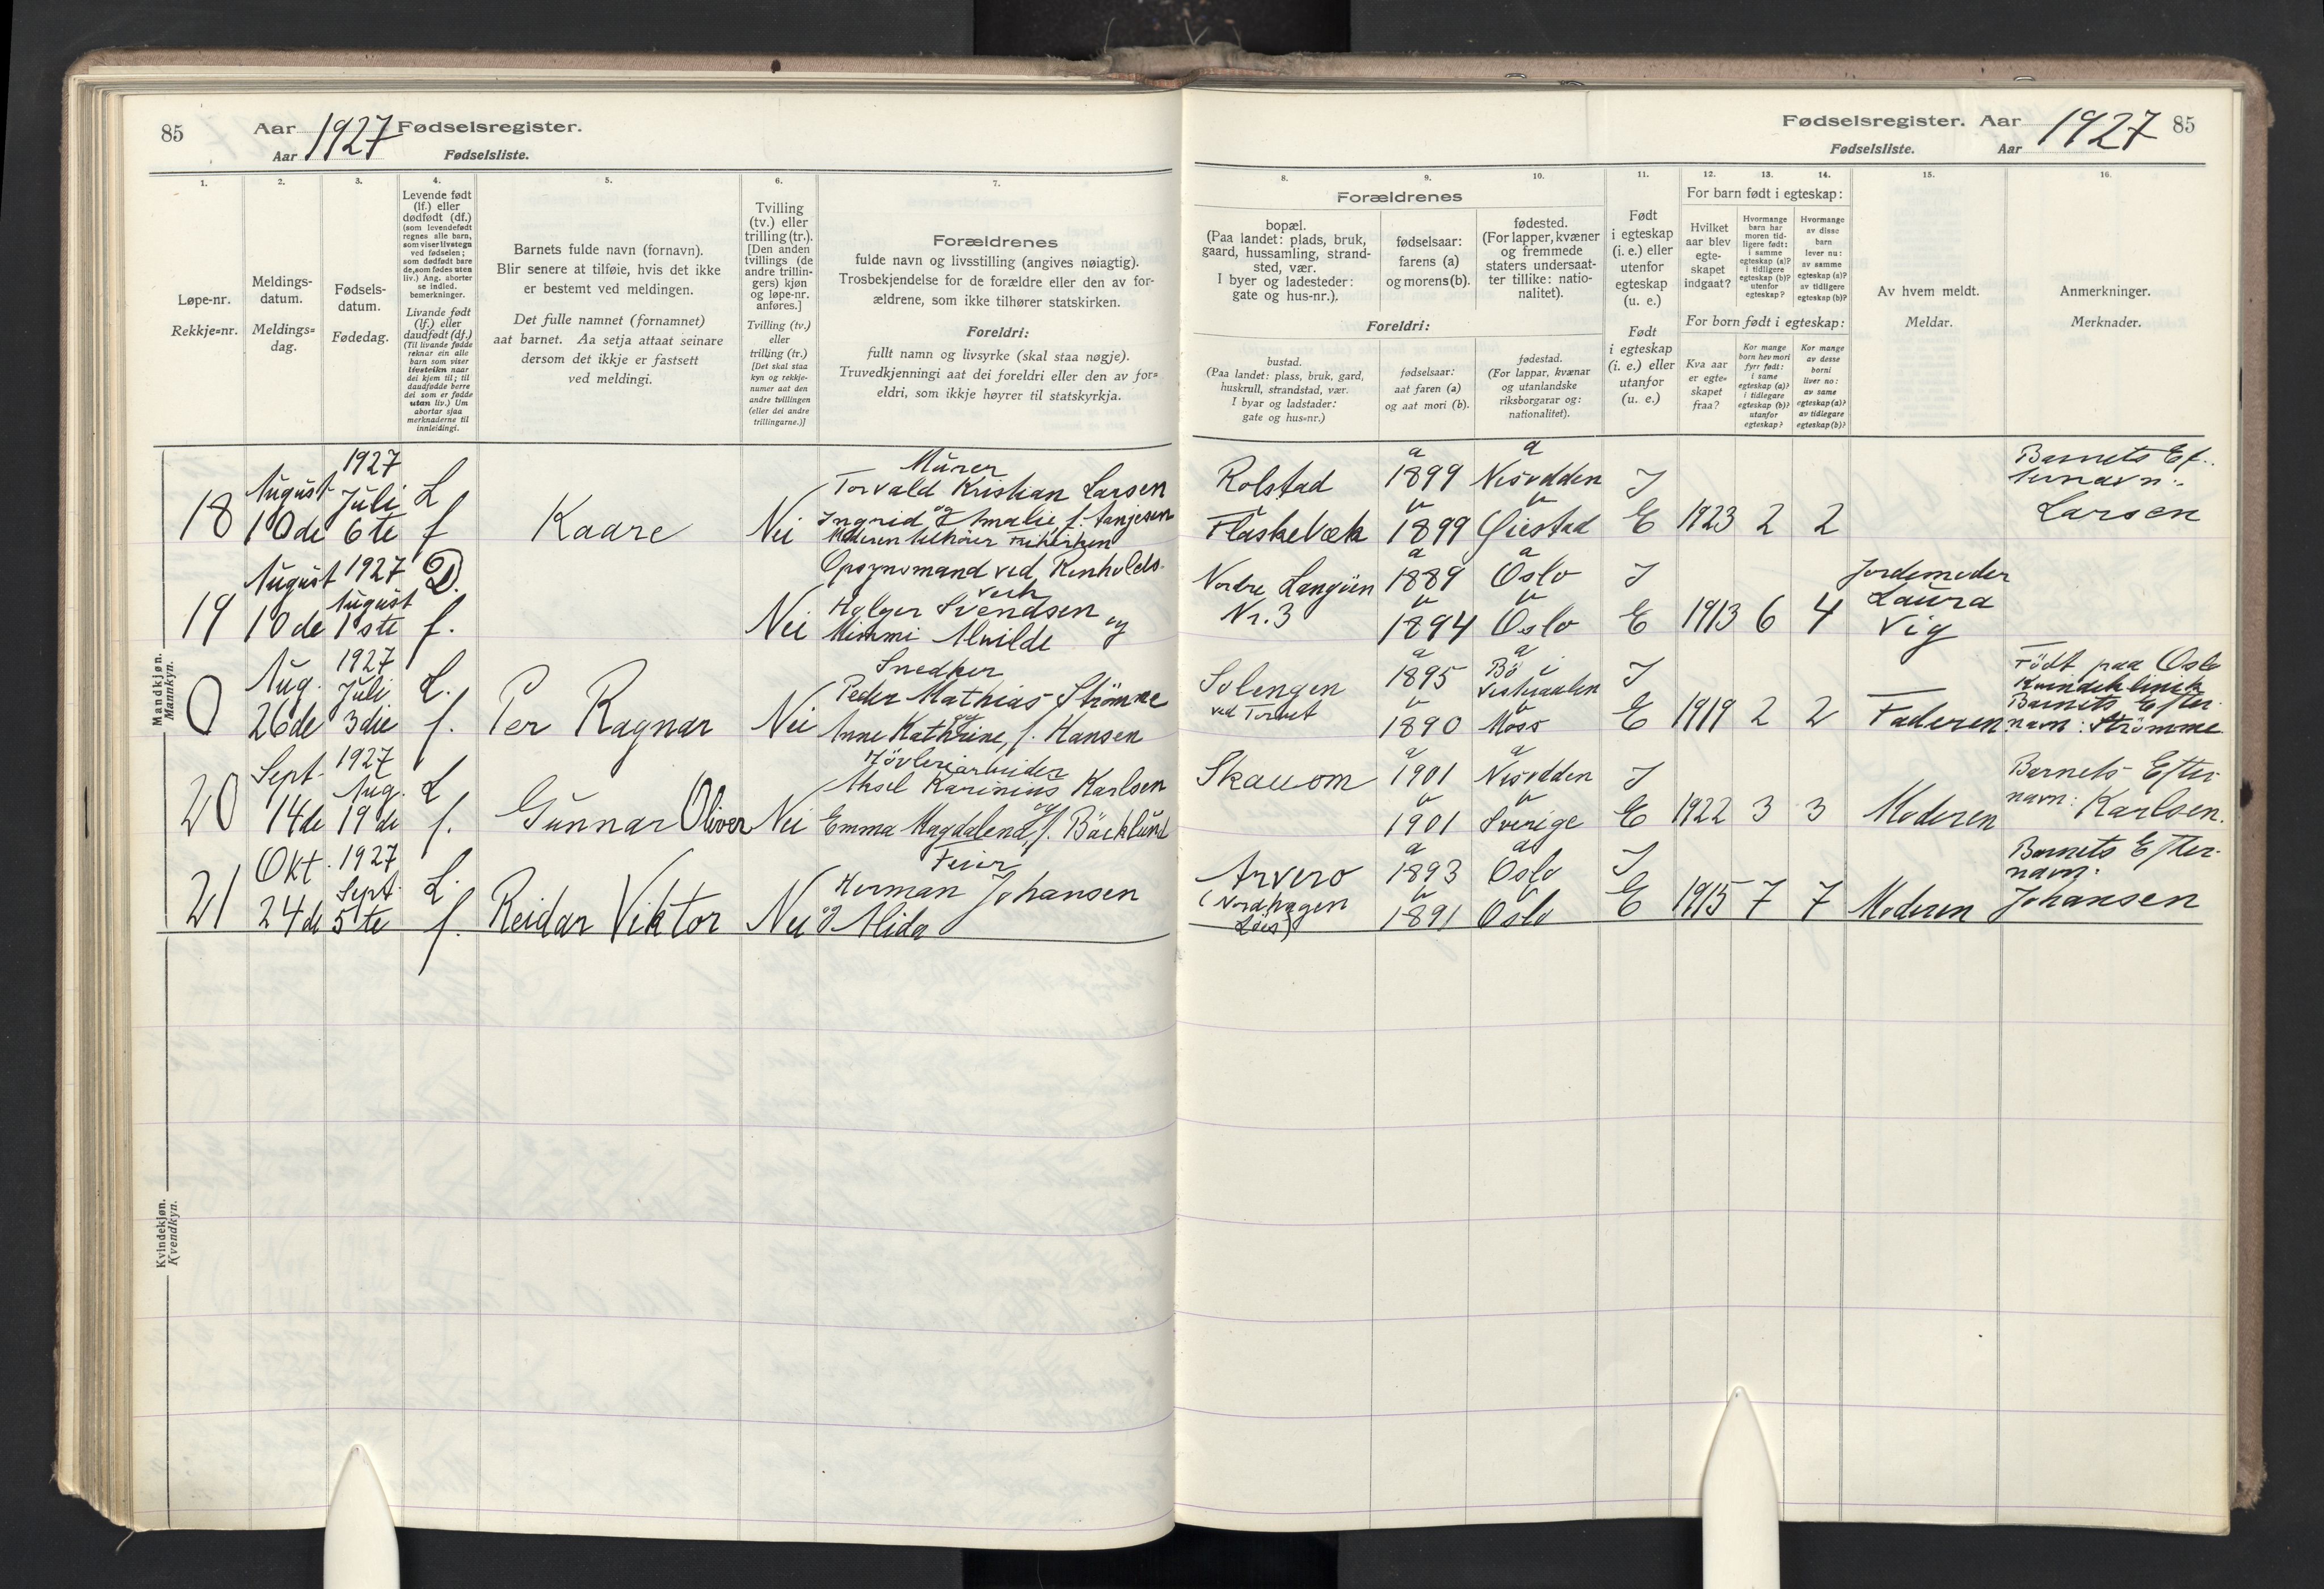 85
Aar 1927 Fødselsregister.
Aar
Fødselsliste.
1.
2.
3.
4.
5.
6.
7.
Løpe-nr.
Rekkje=nr.
Meldings-
datum.
Meldings=
dag.
Fødsels-
datum.
Fødedag.
Levende født
(lf.) eller
dødfødt (df.)
(som levendefødt
regnes alle barn,
som viser livstegn
ved fødselen;
som dødfødt bare
de, som fødes uten
liv.) Ang. aborter
se indled.
bemerkninger.
Livande født
(lf.) eller
daudfødt (df.)
(Til livande fødde
reknar ein alle
barn som viser
livsteikn naar
dei kjem til; til
daudfødde berre
dei som er fødde
utan liv.) Um
abortar sjaa
merknaderne til
innleidingi.
Barnets fulde navn (fornavn).
Blir senere at tilføie, hvis det ikke
er bestemt ved meldingen.
Det fulle namnet (fornamnet)
aat barnet. Aa setja attaat seinare
dersom det ikkje er fastsett
ved meldingi.
Tvilling
(tv.) eller
trilling (tr.).
[Den anden
tvillings (de
andre trillin-
gers) kjøn
og løpe-nr.
anføres.]
Tvilling (tv.)
eller
trilling (tr.)
[Det skal staa
kyn og rekkje-
numer aat den
andre tvillingen
(eller dei andre
trillingarne.)]
Forældrenes
fulde navn og livsstilling (angives nøiagtig).
Trosbekjendelse for de forældre eller den av for-
ældrene, som ikke tilhører statskirken.
Foreldri:
fullt namn og livsyrke (skal staa nøgje).
Truvedkjenningi aat dei foreldri eller den av for=
eldri, som ikkje høyrer til statskyrkja.
Mandkjøn.
Mannkyn.
Kvindekjøn.
Kvendkyn.
18 August 10de 1927 Juli 6te L f Kaare Nei
Murer
Torvald Kristian Larsen
og
Ingrid Amalie f. Tanjesen
Moderen tilhører Frikirken
19 August 10de 1927 August 1ste D. f. Nei
Opsynsmand ved Renholds-
verk
Holger Svendsen og
Mimmi Alvilde
0 Aug. 26de 1927 Juli 3die L. f. Per Ragnar Nei
Snedker
Peder Mathias Strömme
og
Anne Kathrine, f. Hansen
20 Sept. 14de 1927 Aug. 19de L f. Gunnar Oliver Nei
Hövleriarbeider
Aksel Karinius Karlsen
og
Emma Magdalena, f. Bäcklund
21 Okt. 24de 1927 Sept. 5te L. f. Reidar Viktor Nei
Feier
Herman Johansen
og Alida
Fødselsregister. Aar 1927 85
Fødselsliste. Aar
8.
9.
10.
11.
12.
13.
14.
15.
16.
Forældrenes
bopæl.
(Paa landet: plads, bruk,
gaard, hussamling, strand-
sted, vær.
I byer og ladesteder:
gate og hus-nr.).
fødselsaar:
farens (a)
og morens (b).
fødested.
(For lapper, kvæner
og fremmede
staters undersaat-
ter tillike: natio-
nalitet).
Foreldri:
bustad.
(Paa landet: plass, bruk, gard,
huskrull, strandstad, vær.
I byar og ladstader:
gate og hus=nr.)
fødselsaar:
aat faren (a)
og aat mori (b).
fødestad.
(For lappar, kvænar
og utanlandske
riksborgarar og:
nationalitet).
Født
i egteskap
(i. e.) eller
utenfor
egteskap
(u. e.)
Født
i egteskap
(i. e.) eller
utanfor
(u. e.)
For barn født i egteskap:
Hvilket
aar blev
egte-
skapet
indgaat?
Hvormange
barn har
moren tid-
ligere født:
i samme
egteskap (a)?
i tidligere
egteskap (b)?
utenfor
egteskap?
Hvormange
av disse
barn
lever nu:
av samme
egteskap (a)?
av tidligere
egteskap (b)?
For born født i egteskap:
Kva aar
er egte=
skapet
fraa?
Kor mange
born hev mori
fyrr født:
i same
egteskap (a)?
i tidlegare
egteskap (b)?
utanfor
egteskap?
Kor mange
av desse
borni
liver no:
av same
egteskap (a)?
av tidlegare
egteskap (b)?
Av hvem meldt.
Meldar.
Anmerkninger.
Merknader.
Rolstad a 1899 a Nesodden I
Flaskebæk b 1899 b Öiestad E 1923 2 2
Barnets Ef-
ternavn:
Larsen
Nordre Langøien a 1889 a Oslo I
Nr. 3 b 1894 b Oslo E 1913 6 4
Jordemoder
Laura
Vig
Solengen a 1895 a Bö i Vesteraalen I
ved Tornet b 1890 b Moss E 1919 2 2 Faderen
Födt paa Oslo
Kvindeklinik
Barnets Efter-
navn: Strömme
Skauom a 1901 a Nesodden I
b 1901 b Sverige E 1922 3 3 Moderen
Barnets Efter-
navn: Karlsen.
Arvero a 1893 a Oslo I
(Nordhagen b 1891 b Oslo E 1915 7 7 Moderen
Barnets Efter-
navn:
Johansen